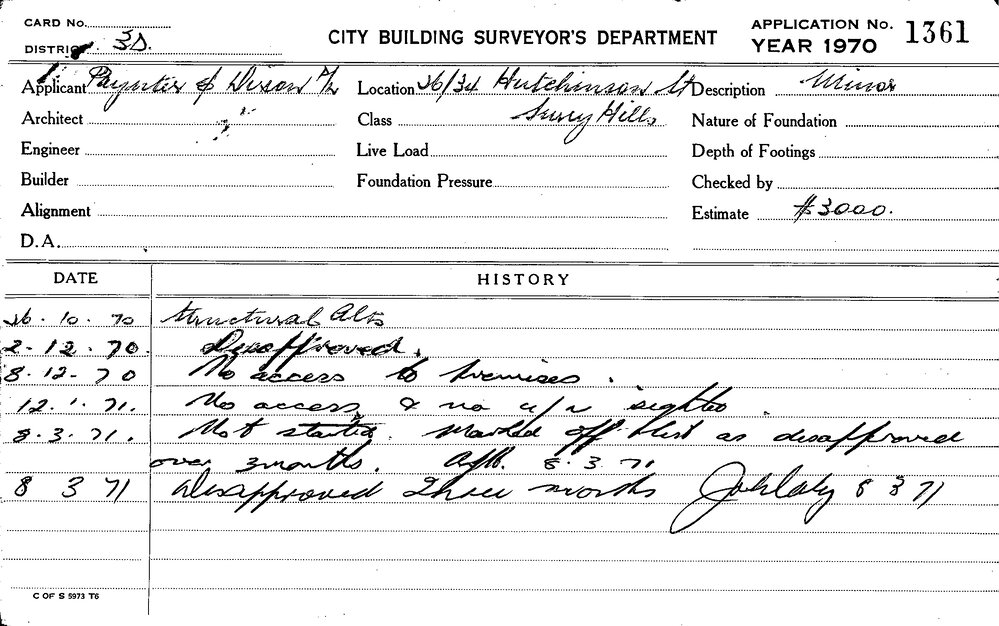 CARD No.
APPLICATION No. 1361
DISTRICT 3D.
CITY BUILDING SURVEYOR'S DEPARTMENT
YEAR 1970
Applicant Paynter & Dixon P/L Location 26/34 Hutchinson St Description Minor
Architect Class Surry Hills Nature of Foundation
Engineer Live Load Depth of Footings
Builder Foundation Pressure Checked by
Alignment Estimate $3000.
D.A.
DATE HISTORY
26.10.70 Structural Alts
2.12.70. Disapproved.
8.12.70 No access to premises.
12.1.71. No access & no sighted.
8.3.71. Not started. Marked off list as disapproved
over 3 months. 8.3.71
8 3 71 Disapproved Three months 8 3 71
C OF S 5973 T6